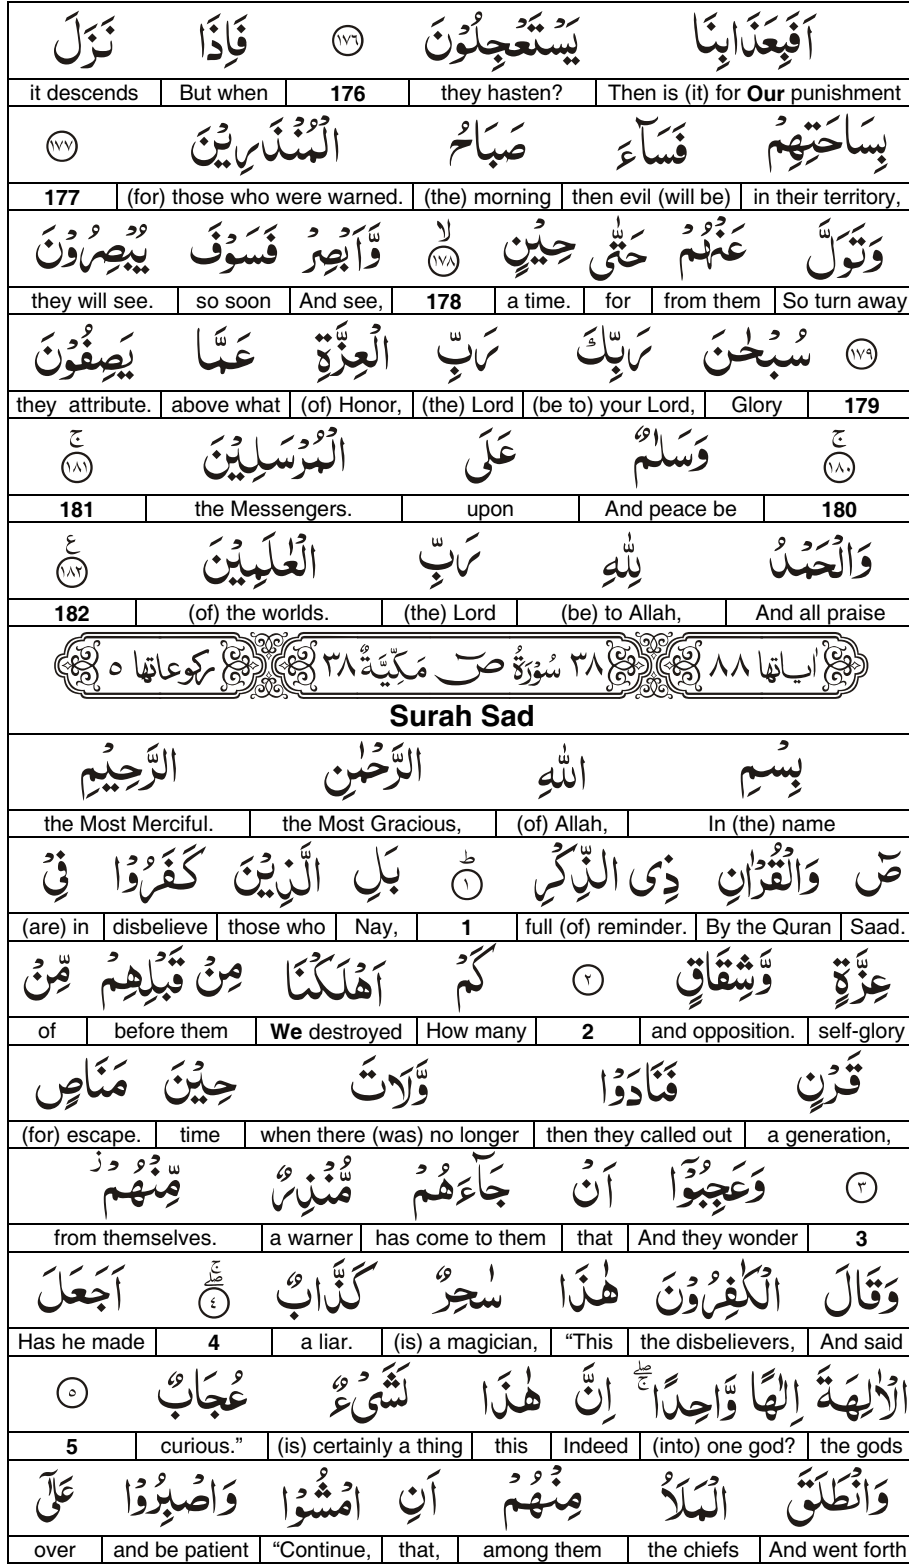 اَفَبِعَذَابِنَا يَسْتَعْجِلُوْنَ ۝۱۷۶ فَاِذَا نَزَلَ
Then is (it) for Our punishment they hasten? 176 But when it descends
بِسَاحَتِهِمْ فَسَآءَ صَبَاحُ الْمُنْذَرِيْنَ ۝۱۷۷
in their territory, then evil (will be) (the) morning (for) those who were warned. 177
وَتَوَلَّ عَنْهُمْ حَتّٰى حِيْنٍ ۙ۝۱۷۸ وَّاَبْصِرْ فَسَوْفَ يُبْصِرُوْنَ
So turn away from them for a time. 178 And see, so soon they will see.
۝۱۷۹ سُبْحٰنَ رَبِّكَ رَبِّ الْعِزَّةِ عَمَّا يَصِفُوْنَ
179 Glory (be to) your Lord, (the) Lord (of) Honor, above what they attribute.
ۚ۝۱۸۰ وَسَلٰمٌ عَلَى الْمُرْسَلِيْنَ ۚ۝۱۸۱
180 And peace be upon the Messengers. 181
وَالْحَمْدُ لِلّٰهِ رَبِّ الْعٰلَمِيْنَ ۝۱۸۲ ع
And all praise (be) to Allah, (the) Lord (of) the worlds. 182
اٰیاتها ۸۸ ۳۸ سُوْرَةُ صٓ مَكِّيَّةٌ ۳۸ ركوعاتها ۵
Surah Sad
بِسْمِ اللهِ الرَّحْمٰنِ الرَّحِيْمِ
In (the) name (of) Allah, the Most Gracious, the Most Merciful.
صٓ وَالْقُرْاٰنِ ذِى الذِّكْرِ ؕ۝۱ بَلِ الَّذِيْنَ كَفَرُوْا فِىْ
Saad. By the Quran full (of) reminder. 1 Nay, those who disbelieve (are) in
عِزَّةٍ وَّشِقَاقٍ ۝۲ كَمْ اَهْلَكْنَا مِنْ قَبْلِهِمْ مِّنْ
self-glory and opposition. 2 How many We destroyed before them of
قَرْنٍ فَنَادَوْا وَّلَاتَ حِيْنَ مَنَاصٍ
a generation, then they called out when there (was) no longer time (for) escape.
۝۳ وَعَجِبُوْٓا اَنْ جَآءَهُمْ مُّنْذِرٌ مِّنْهُمْ ز
3 And they wonder that has come to them a warner from themselves.
وَقَالَ الْكٰفِرُوْنَ هٰذَا سٰحِرٌ كَذَّابٌ ۖۚ۝۴ اَجَعَلَ
And said the disbelievers, “This (is) a magician, a liar. 4 Has he made
الْاٰلِهَةَ اِلٰهًا وَّاحِدًا ۖۚ اِنَّ هٰذَا لَشَىْءٌ عُجَابٌ ۝۵
the gods (into) one god? Indeed this (is) certainly a thing curious.” 5
وَانْطَلَقَ الْمَلَاُ مِنْهُمْ اَنِ امْشُوْا وَاصْبِرُوْا عَلٰٓى
And went forth the chiefs among them that, “Continue, and be patient over